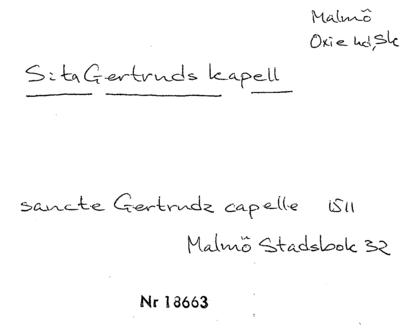 Malmö
Oxie hd, Sk
S:ta Gertruds kapell
sancte Gertrudz capelle 1511
Malmö Stadsbok 32
Nr 18663